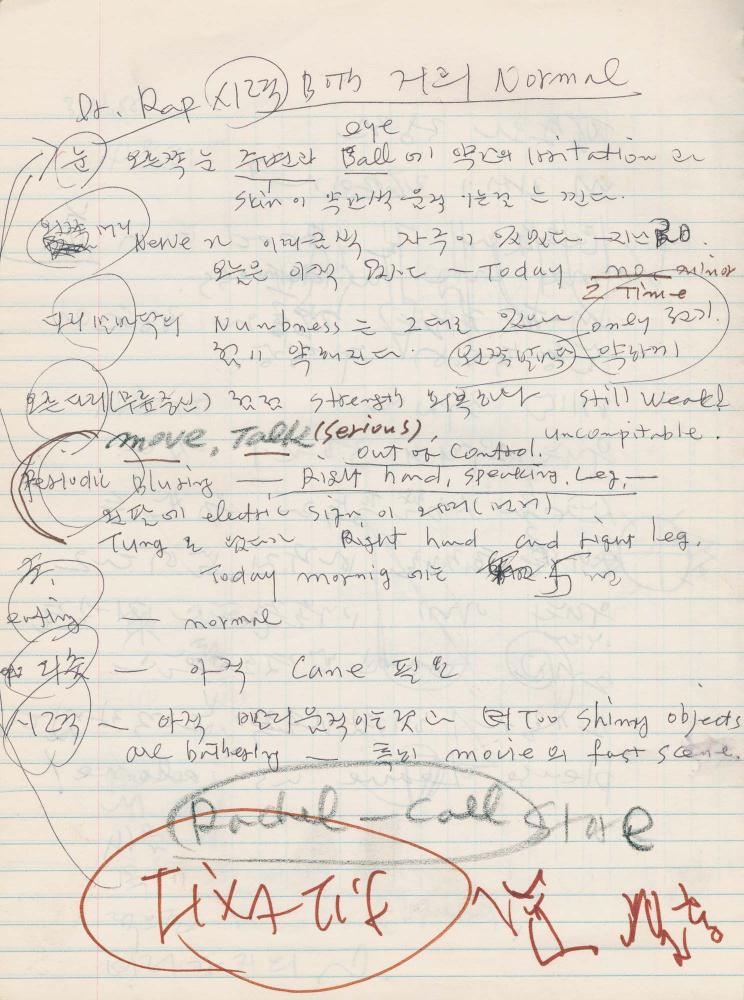 Dr. Rap 시력 Both 거의 Normal
eye
눈 오른쪽 눈 주변과 Ball 에 약간의 irritation 과
skin 이 약간씩 움직이는것 느낀다.
왼쪽 머리 Nerve 가 이따금씩 자주 있었다
오늘은 아직 없다 — Today no minor
2 Time
다리 발바닥의 Numbness 는 그대로 있으나 only 걷기.
점점 약해진다. 왼쪽발바닥 약하게
오른다리(무릎중심) 점점 strength 회복하나 still weak!
move, Talk (serious), uncompitable.
out of control.
Periodic — Right hand, speaking, Leg, —
왼팔에 electric sign 이 오며
Tung 은 없다가 Right hand and right leg.
Today mornig 에는 5
eating — normal
— 아직 Cane 필요
시력 — 아직 빨리 움직이는것과 Too Shiny objects
are bothering — 특히 movie 의 fast scene.
Rachel - Call Store
FIXATIF